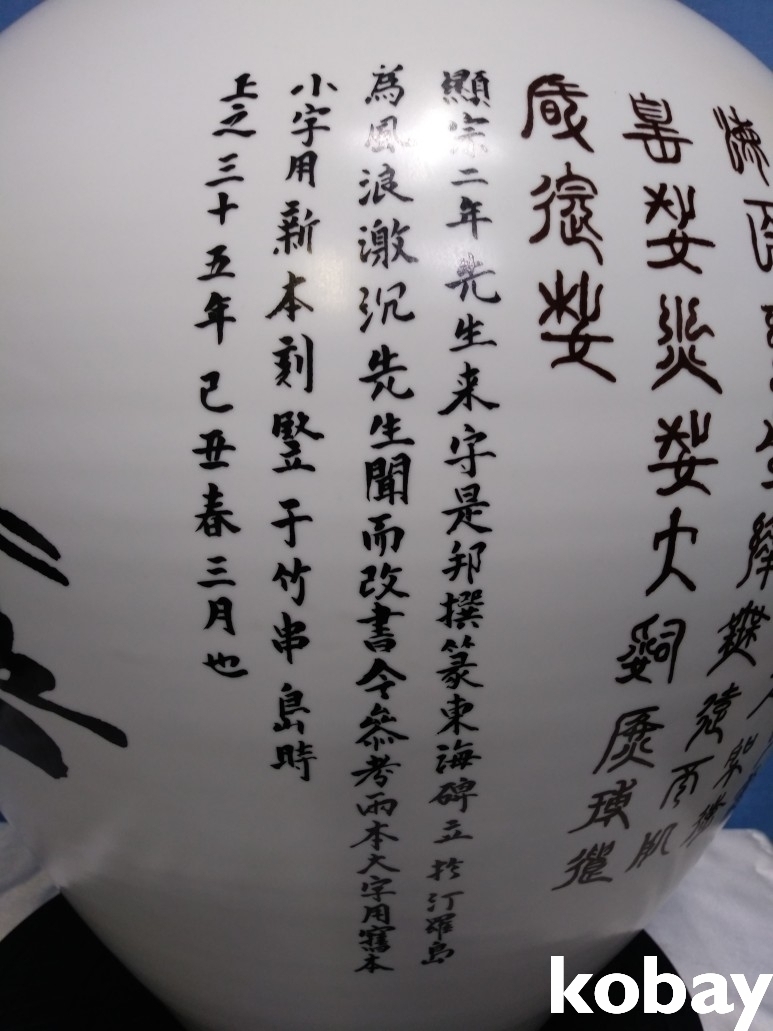 皇哉熙哉大治廣博遺
風邈哉
顯宗二年先生来守是邦撰篆東海碑立於汀羅島
為風浪激沉先生聞而改書今參考兩本大字用舊本
小字用新本刻竪于竹串島時
上之三十五年己丑春三月也
kobay